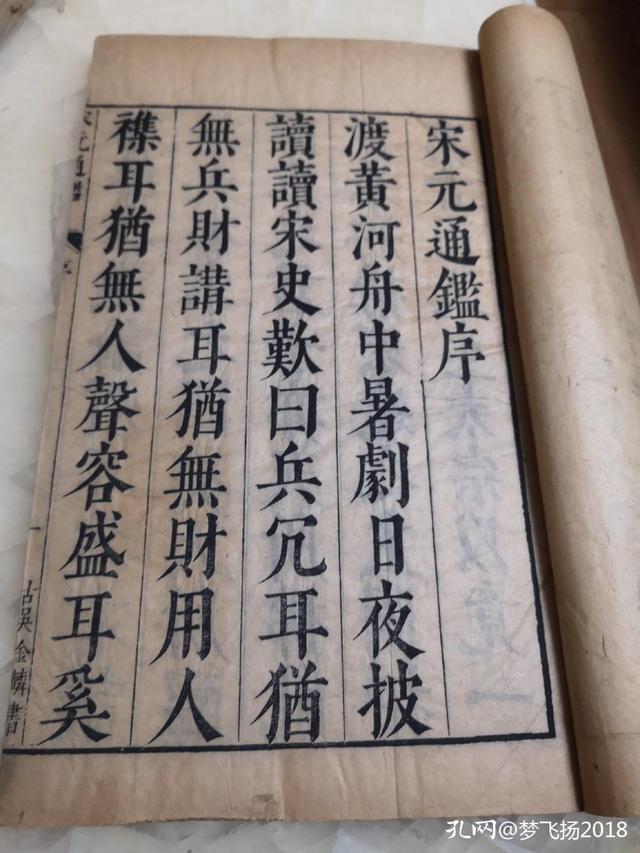 宋元通鑑序
渡黄河舟中暑劇日夜披
讀讀宋史歎曰兵冗耳猶
無兵財講耳猶無財用人
襍耳猶無人聲容盛耳奚
宋元通鑑
序
古吳金麟書
孔网@梦飞扬2018